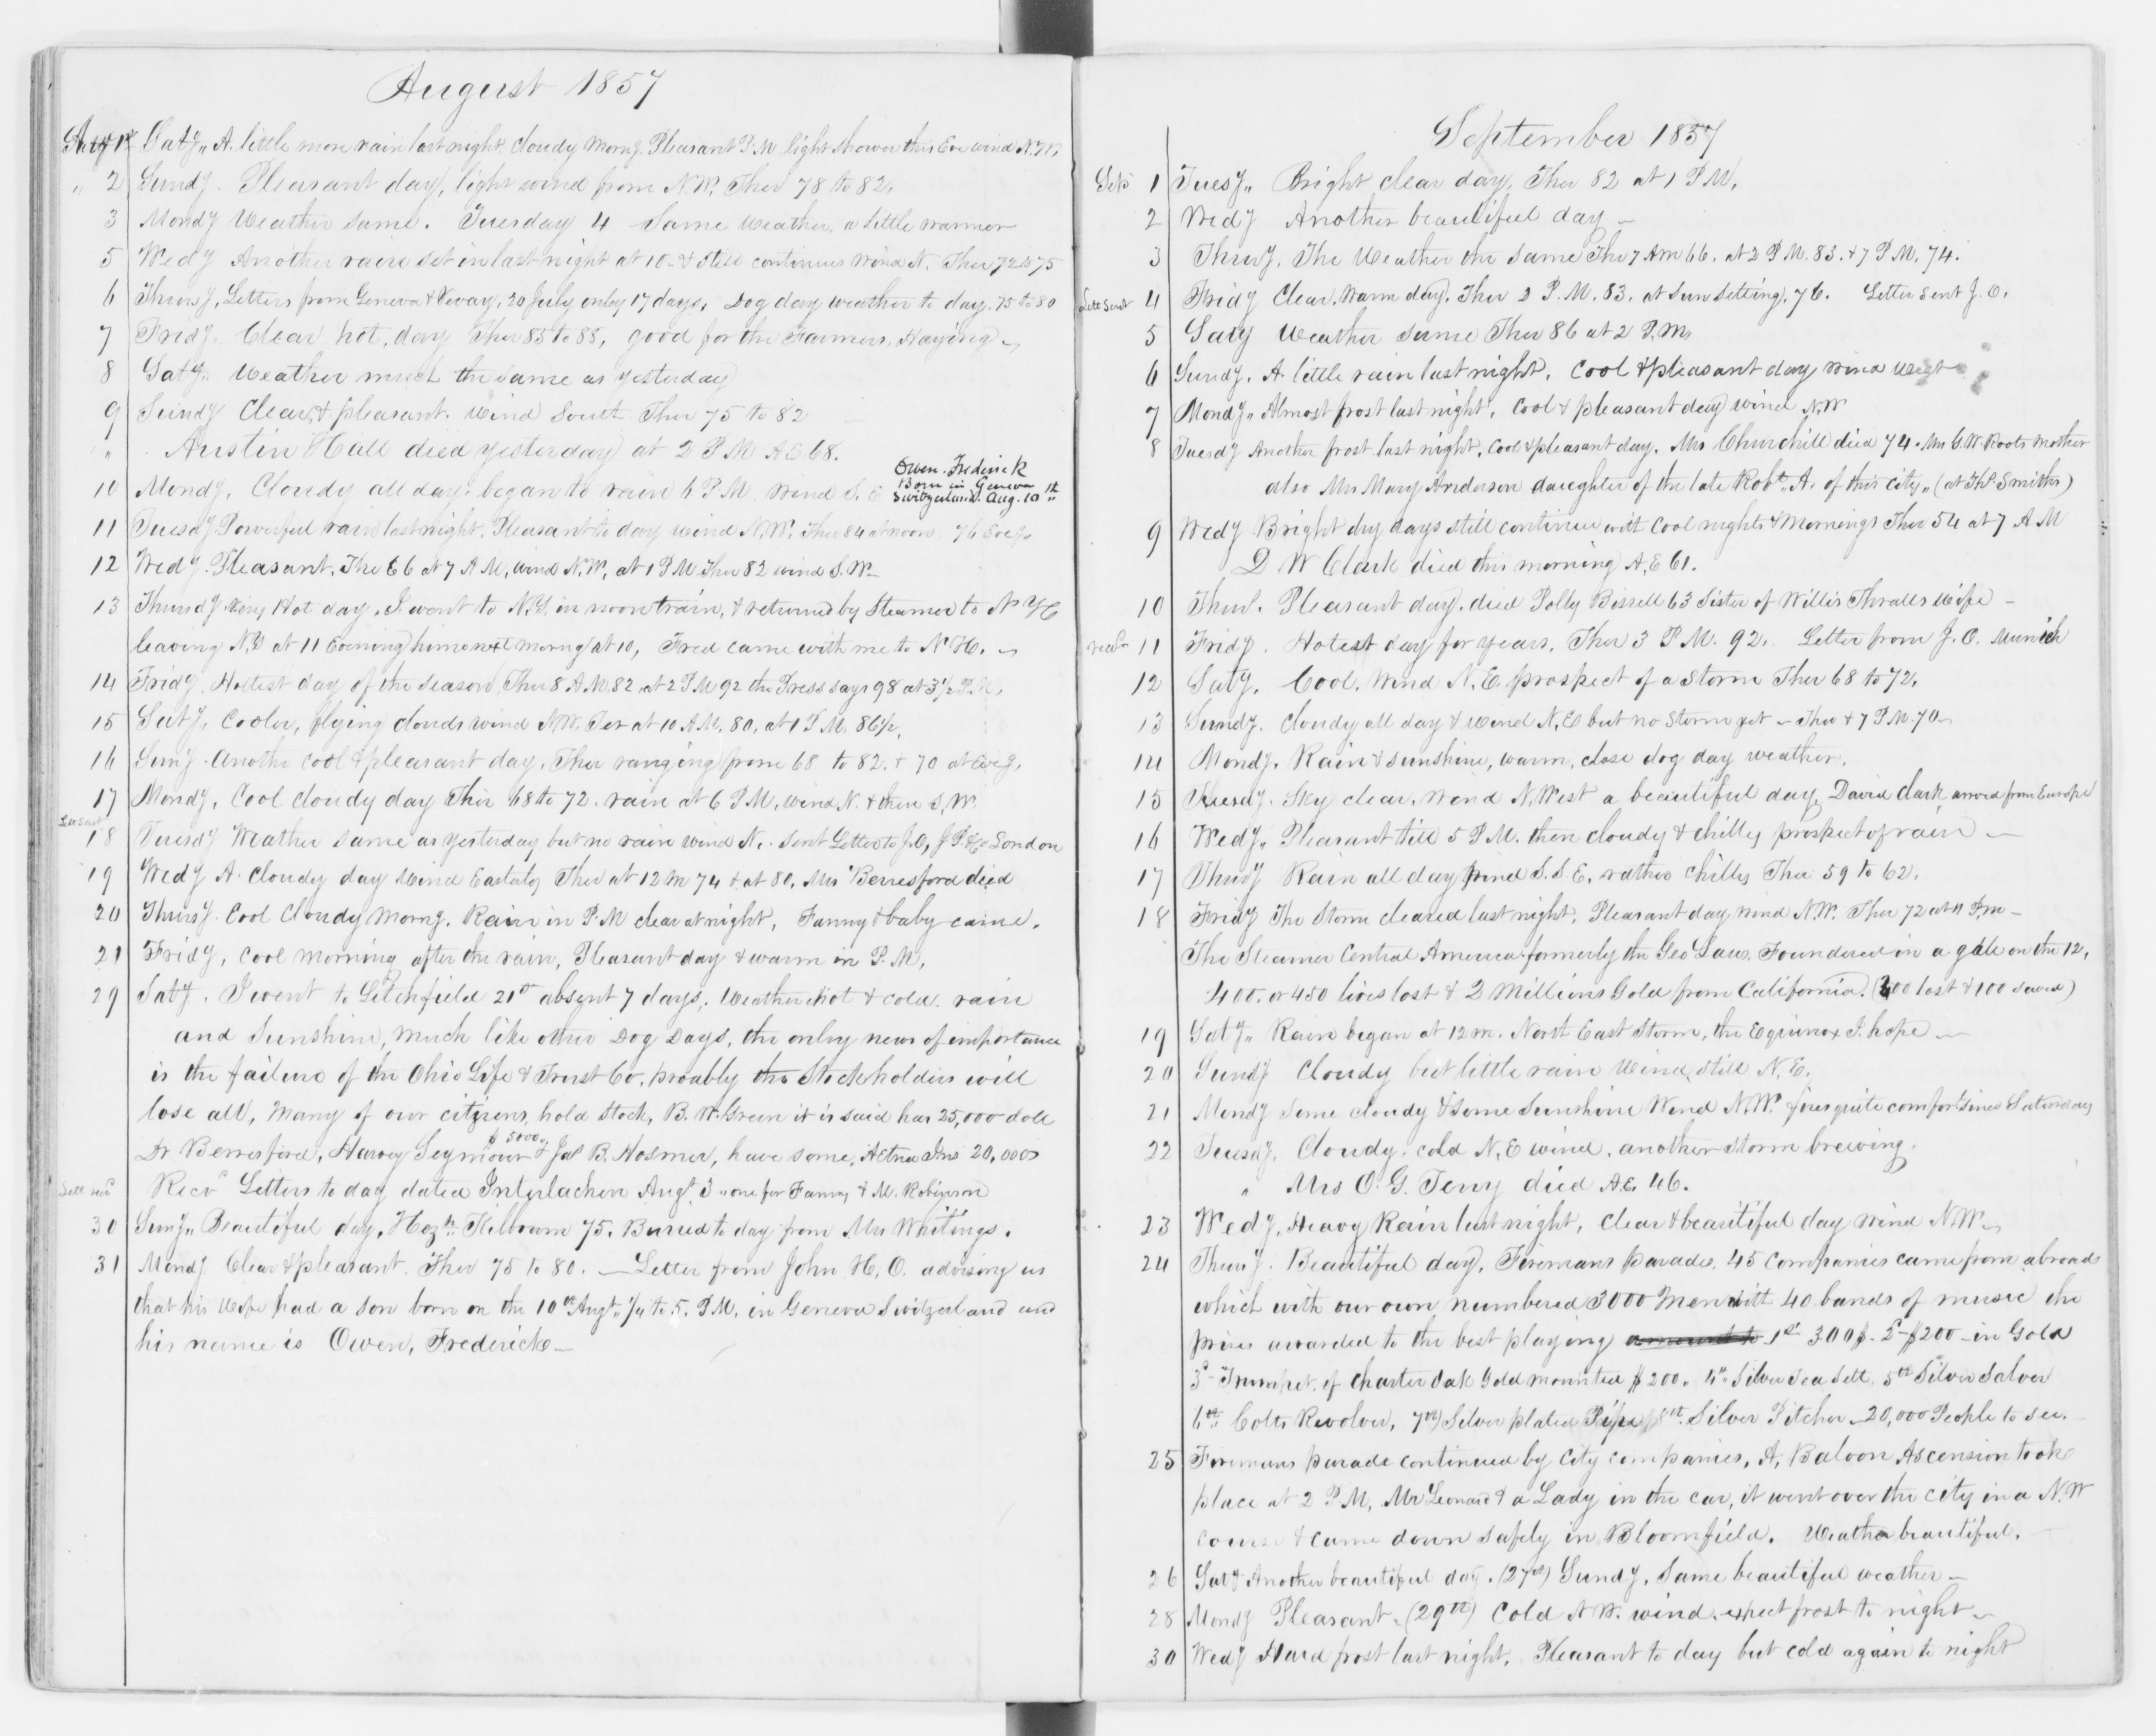 August 1857
Augt 1st Saty,, A little more rain last night, Cloudy Morng. Pleasant P.M light shower this Eve wind N.W.
,, 2 Sundy. Pleasant day, light wind from N.W. Ther 78 to 82.
3 Mondy Weather same. Tuesday 4 Same Weather, a little warmer
5 Wedy Another rain set in last night at 10 & still continues Wind N. Ther 72 to 75
6 Thursy, Letters from Geneva & Vevay, 20 July only 17 days, Dog day weather to day. 75 to 80
7 Fridy. Clear hot, day Ther 85 to 88, good for the Farmers, Haying
8 Saty,, Weather much the same as yesterday
9 Sundy Clear, & pleasant. Wind South Ther 75 to 82
,, Austin Hall died yesterday at 2 P.M AE 68.
Owen. Frederick
Born in Geneva
Switzerland. Aug. 10th
10 Mondy, Cloudy all day. began to rain 6 P.M. wind S. E
11 Tuesdy Powerful rain last night. Pleasant to day wind N.W. Ther 84 at noon 76 Eveg.
12 Wedy. Pleasant. The 66 at 7 A M, wind N.W. at 1 P M Ther 82 wind S.W
13 Thursdy Very Hot day. I went to N.Y. in noon train, & returned by Steamer to N H
leaving N.Y at 11 Evening home next morng at 10, Fred came with me to N H.
14 Fridy. Hottest day of the season Ther 8 A M 82 at 2 P M 92 the Press says 98 at 3½ P.M.
15 Saty, Cooler, flying clouds wind NW. Ter at 10 A M. 80, at 1 P.M. 86½
16 Suny. Anothe cool & pleasant day. Ther ranging from 68 to 82. & 70 at Eveg.
17 Mondy, Cool cloudy day Ther 68 to 72. rain at 6 P.M, wind N. & then S.W.
Let Sent
18 Tuesdy Weather same as yesterday but no rain wind N. Sent Letter to J.O, J P. & Co London
19 Wedy A. Cloudy day Wind Easterly Ther at 12 M 74 & at 80. Mrs Berresford died
20 Thursy. Cool Cloudy Morng. Rain in P.M clear at night, Fanny & baby came.
21 Fridy, Cool morning after the rain, Pleasant day & warm in P.M,
29 Saty. I went to Litchfield 21st absent 7 days; Weather Hot & cold. rain
and Sunshine, Much like other Dog Days, the only news of importance
is the failure of the Ohio Life & Trust Co. proably the Stockholders will
lose all, Many of our citizens, hold Stock, B. W. Green it is said has 25,000 doll
$ 5000
Dr Berresford, Harvey Seymour & Jas B. Hosmer, have some, Aetna Ins 20,000
Lett recd Recd Letters to day dated Interlachen Augt 3 ,, one for Fanny & M. Robinson
30 Suny,, Beautiful day. Hezh. Kilbourn 75. Buried to day from Mrs Whitings.
31 Mondy Clear & pleasant. Ther 75 to 80. Letter from John H. O. advising us
that his Wife had a son born on the 10th Augt. ¼ to 5. P.M. in Geneva Switzerland and
his name is Owen, Frederick
September 1857
Sept 1 Tuesy,, Bright clear day. Ther 82 at 1 P M.
2 Wedy Another beautiful day
3 Thursy. The Weather the same Ther 7 Am 66. at 2 P M. 83. & 7 P.M. 74.
Lett Sent 4 Fridy Clear, Warm day. Ther 2 P.M. 83. at Sun setting. 76. Letter Sent J. O.
5 Saty Weather same Ther 86 at 2 P.M
6 Sundy. A little rain last night. Cool & pleasant day wind West
7 Mondy,, Almost frost last night. Cool & pleasant day wind N.W
8 Tuesdy Another frost last night. Cool & pleasant day. Mrs Churchill died 74. Mrs G.W. Roots Mother
also Mrs Mary Anderson daughter of the late Robt. A. of this city,, (at Ths. Smiths)
9 Wedy Bright dry days still continue with Cool nights & Mornings Ther 54 at 7 A M
D W Clark died this morning AE 61.
10 Thur. Pleasant day. died Polly Bissell 63 Sister of Willis Thralls wife
recd 11 Fridy. Hotest day for years. Ther 3 P.M. 92. Letter from J. O. Munich
12 Saty. Cool. Wind N.E. prospect of a Storm Ther 68 to 72.
13 Sundy. Cloudy all day & Wind N.E but no Storm yet Ther & 7 P.M. 70
14 Mondy. Rain & sunshine, warm, close dog day weather.
15 Tuesdy. Sky clear, Wind N.West a beautiful day, David Clark arrived from Europe
16 Wedy,, Pleasant till 5 P.M. then cloudy & chilly prospect of rain
17 Thurdy Rain all day wind S.S E. rather chilly Ther 59 to 62.
18 Fridy The Storm cleared last night. Pleasant day wind N.W. Ther 72 at P.m
The Steamer Central America formerly the Geo Laws. Foundered in a gale on the 12,
400. or 450 lives lost & 2 Millions Gold from California. (400 lost & 100 saved)
19 Saty,, Rain began at 12 m. North East Storm, the Equinox I hope
20 Sundy Cloudy but little rain Wind, still N.E.
21 Mondy Some cloudy & Some Sunshine Wind N.W. fires quite comfor since Saturday
22 Tuesdy. Cloudy. cold N.E wind, another storm brewing.
,, Mrs O. G. Terry died AE. 46.
23 Wedy, Heavy Rain last night, clear & beautiful day wind N.W
24 Thursy. Beautiful day. Firemans parade. 45 Companies came from abroad
which with our own numbered 3000 Men with 40 bands of music the
prises awarded to the best playing 1st 300$. 2d $200 in Gold
3d Trumpet of Charter Oak Gold mounted $200. 4th Silver Tea Sett. 5th Silver Salver
6th Colts Revolver, 7th Silver plated Pipe, 8th Silver Pitcher 20,000 People to see.
25 Firemans parade continued by City companies, A, Baloon Ascension took
place at 2 P.M, Mr Leonard & a Lady in the car, it went over the city in a N.W
course & came down safely in Bloomfield. Weather beautiful.
26 Saty Another beautiful day. (27th) Sundy. Same beautiful weather
28 Mondy Pleasant. (29th) Cold N W. wind, expect frost to night
30 Wedy Hard frost last night. Pleasant to day but cold again to night